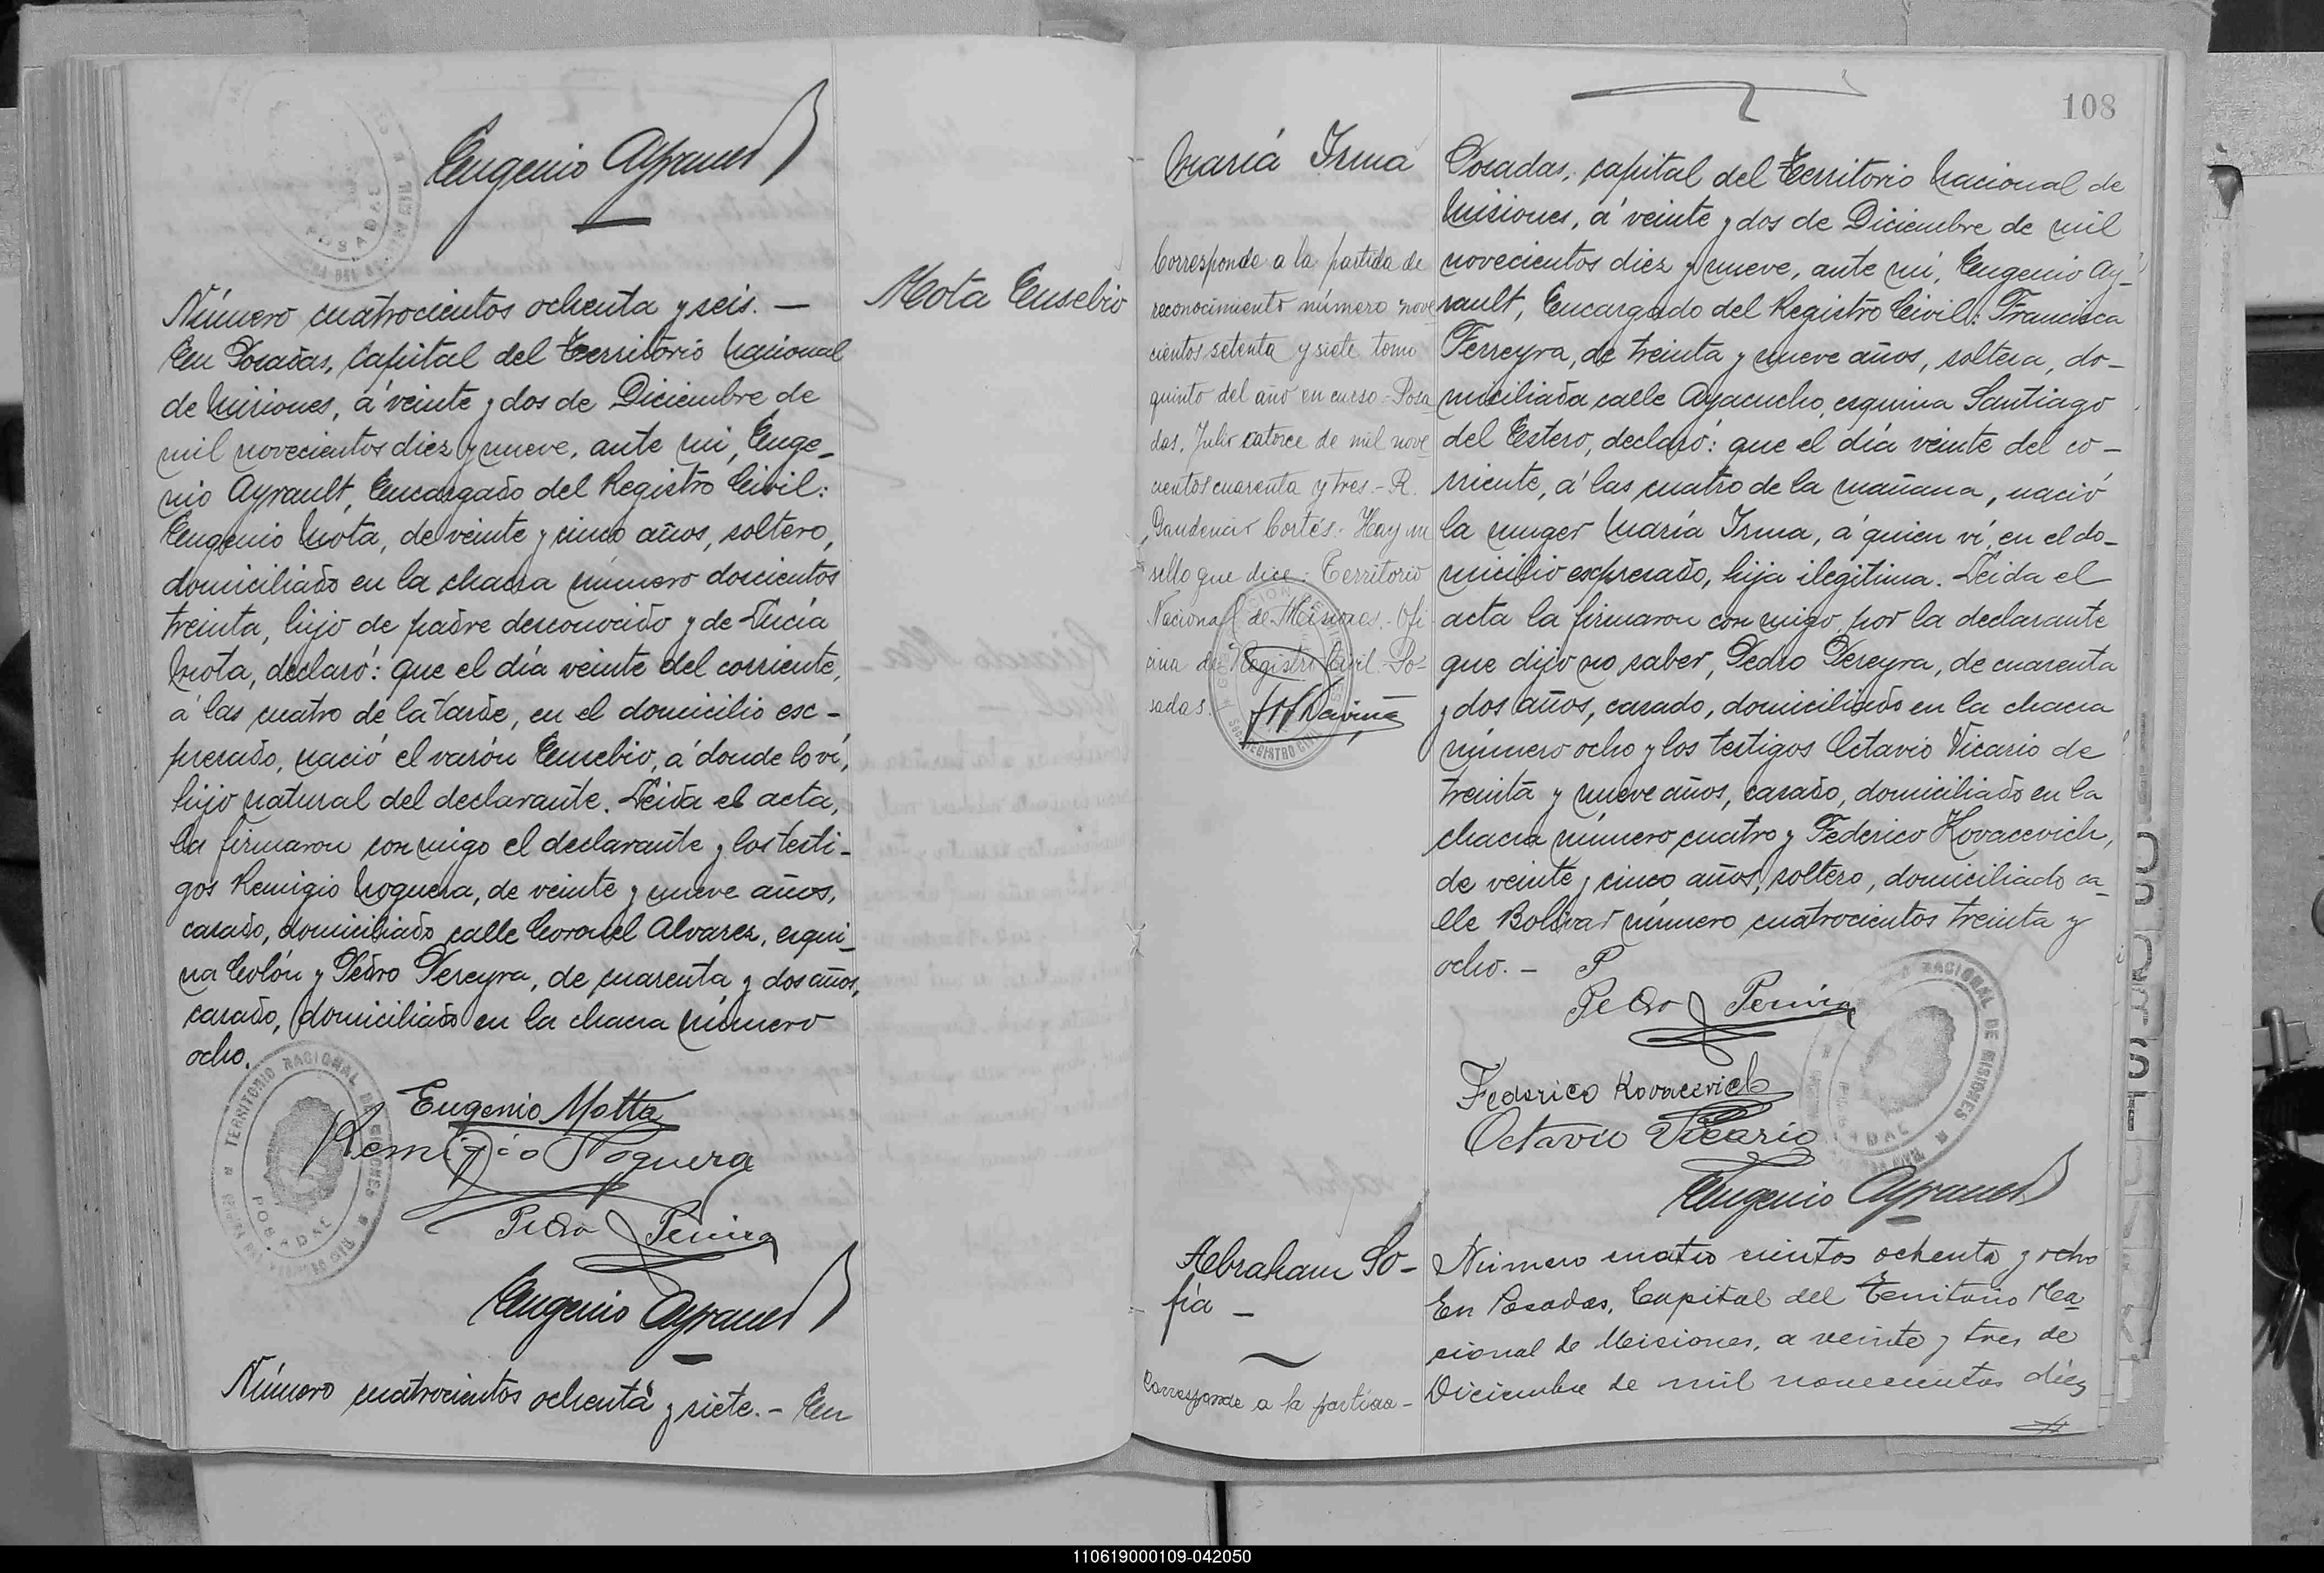 Eugenio Ayrault
Número cuatrocientos ochenta y seis. —
En Posadas, Capital del Territorio Nacional
de Misiones, á veinte y dos de Diciembre de
mil novecientos diez y nueve, ante mi, Euge-
nio Ayrault, Encargado del Registro Civil:
Eugenio Mota, de veinte y cinco años, soltero,
domiciliado en la chacra número doscientos
treinta, hijo de padre desconocido y de Lucía
Mota, declaró: que el día veinte del corriente,
á las cuatro de la tarde, en el domicilio esc-
presado, nació el varón Eusebio, á donde lo ví,
hijo natural del declarante. Leida el acta,
la firmaron con migo el declarante y los testi-
gos Remigio Noguera, de veinte y nueve años,
casado, domiciliado calle Coronel Alvarez, esqui-
na Colón y Pedro Pereyra, de cuarenta y dos años,
casado, domiciliado en la chacra número
ocho.
TERRITORIO NACIONAL DE MISIONES
POSADAS
Eugenio Motta
Remigio Noguera
Pedro Pereira
Eugenio Ayrault
Número cuatrocientos ochenta y siete. - En
Mota Eusebio
108
María Irma
Corresponde a la partida de
reconocimiento número nove
cientos setenta y siete tomo
quinto del año en curso - Posa
das, Julio catorce de mil nove
cientos cuarenta y tres. - R.
Gaudencio Cortés. Hay un
sello que dice: Territorio
Nacional de Misiones. Ofi
cina de Registro Civil. Po-
sadas.
REGISTRO CIVIL
Posadas, capital del Territorio Nacional de
Misiones, á veinte y dos de Diciembre de mil
novecientos diez y nueve, ante mi, Eugenio Ay-
rault, Encargado del Registro Civil: Francisca
Ferreyra, de treinta y nueve años, soltera, do-
miciliada calle Ayacucho, esquina Santiago
del Estero, declaró: que el día veinte del co-
rriente, á las cuatro de la mañana, nació
la muger María Irma, á quien ví en el do-
micilio escpresado, hija ilegitima. Leida el
acta la firmaron con migo, por la declarante
que dijo no saber, Pedro Pereyra, de cuarenta
y dos años, casado, domiciliado en la chacra
número ocho y los testigos Octavio Vicario de
treinta y nueve años, casado, domiciliado en la
chacra número cuatro y Federico Kovacevich,
de veinte y cinco años, soltero, domiciliado ca-
lle Bolívar número cuatrocientos treinta y
ocho. - P
Pedro Pereira
NACIONAL DE MISIONES
Federico Kovacevich
Octavio Vicario
Eugenio Ayrault
Abraham So-
fía —
Corresponde a la partida -
Número cuatro cientos ochenta y ocho
En Posadas, Capital del Territorio Na-
cional de Misiones, a veinte y tres de
Diciembre de mil novecientos diez
110619000109-042050